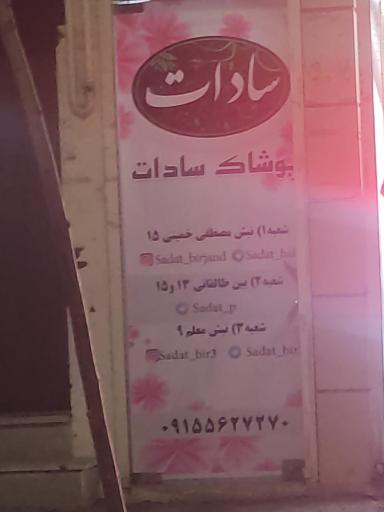 سادات
پوشاک سادات
شعبه ۱) نبش مصطفی خمینی ۱۵
Sadat_birjand Sadat_bir
شعبه ۲) بین طالقانی ۱۳ و ۱۵
Sadat_p
شعبه ۳) نبش معلم ۹
Sadat_bir3 Sadat_bir
۰۹۱۵۵۶۲۷۲۷۰